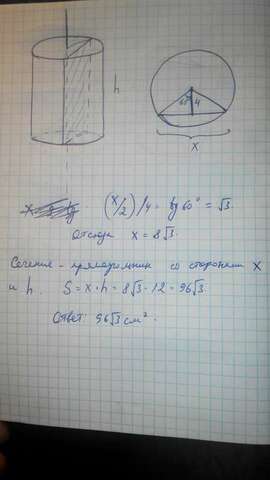 h
60° 4
x
(x/2)/4 = tg 60° = √3
Отсюда x = 8√3
Сечение - прямоугольник со сторонами x
и h. S = x·h = 8√3·12 = 96√3
Ответ: 96√3 см².